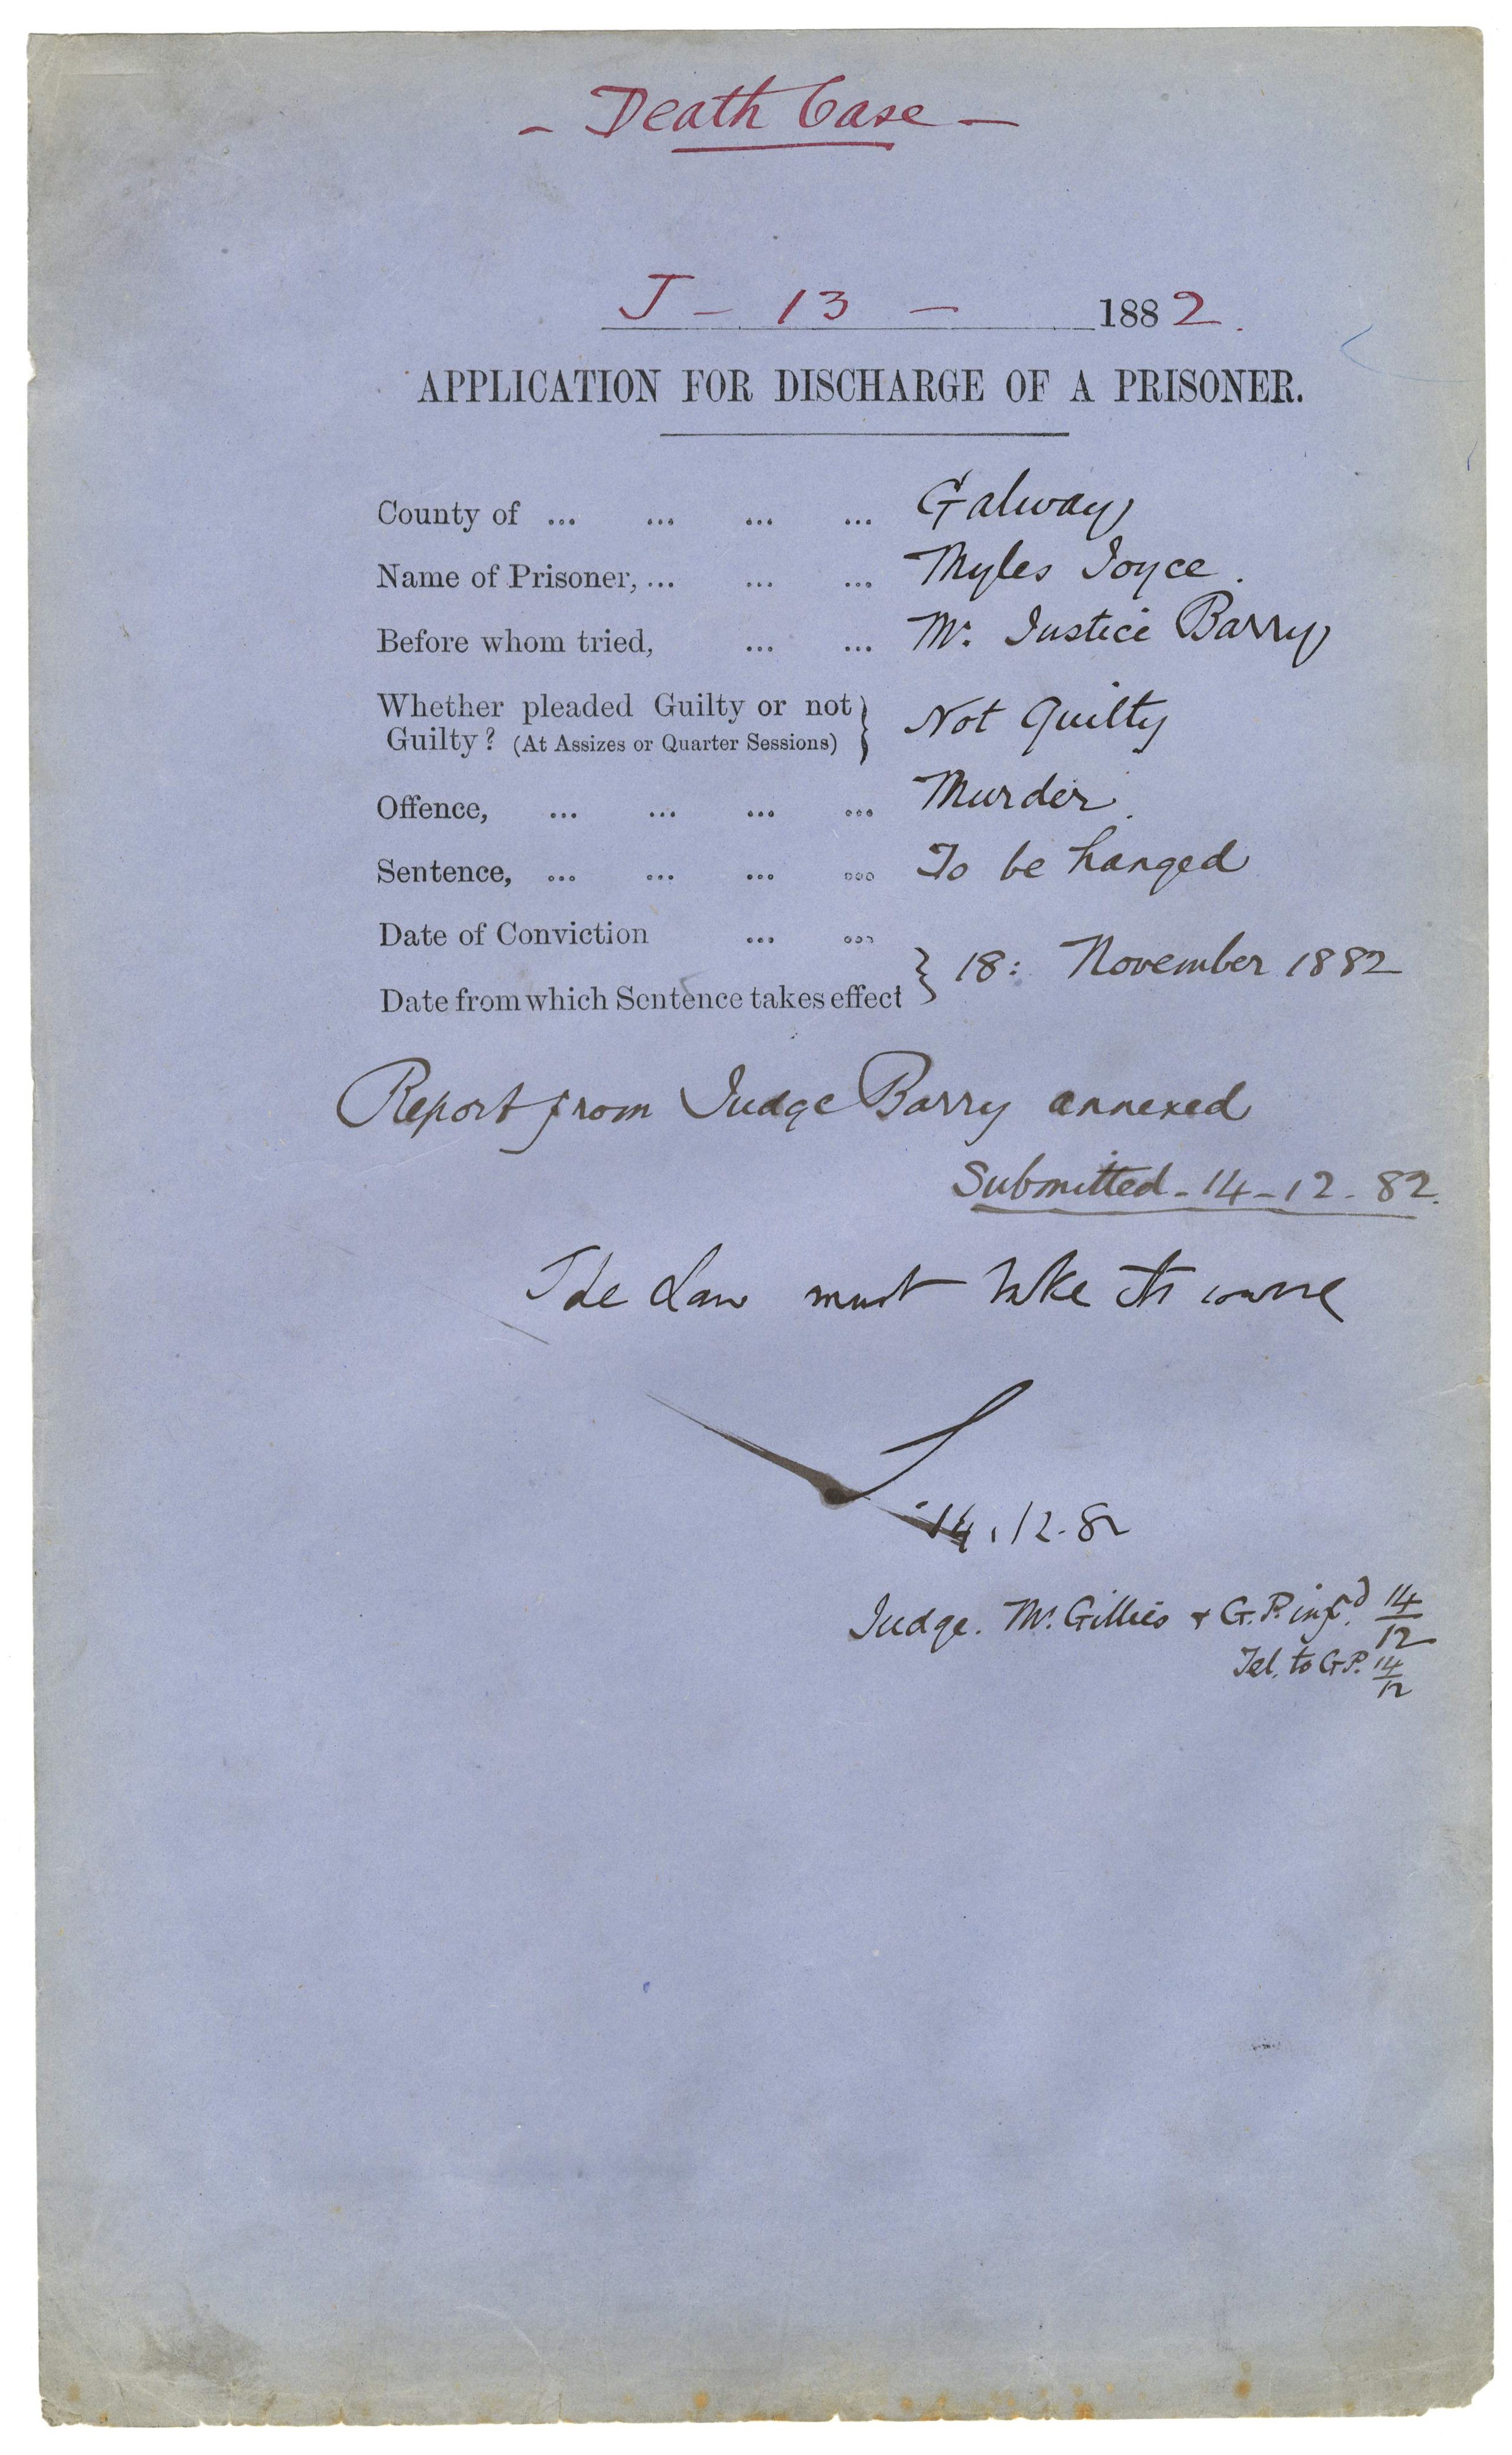 - Death Case -
J - 13 - 1882.
APPLICATION FOR DISCHARGE OF A PRISONER.
County of ... ... ... ... Galway
Name of Prisoner, ... ... ... Myles Joyce.
Before whom tried, ... ... Mr. Justice Barry
Whether pleaded Guilty or not } Not Guilty
Guilty? (At Assizes or Quarter Sessions)
Offence, ... ... ... ... Murder.
Sentence, ... ... ... ... To be hanged
Date of Conviction ... ...
} 18: November 1882
Date from which Sentence takes effect
Report from Judge Barry annexed
Submitted - 14 - 12 - 82.
The Law must take its course
S
14.12.82
Judge. Mr. Gillies + G.P. infd. 14/12
Tel. to G.P. 14/12